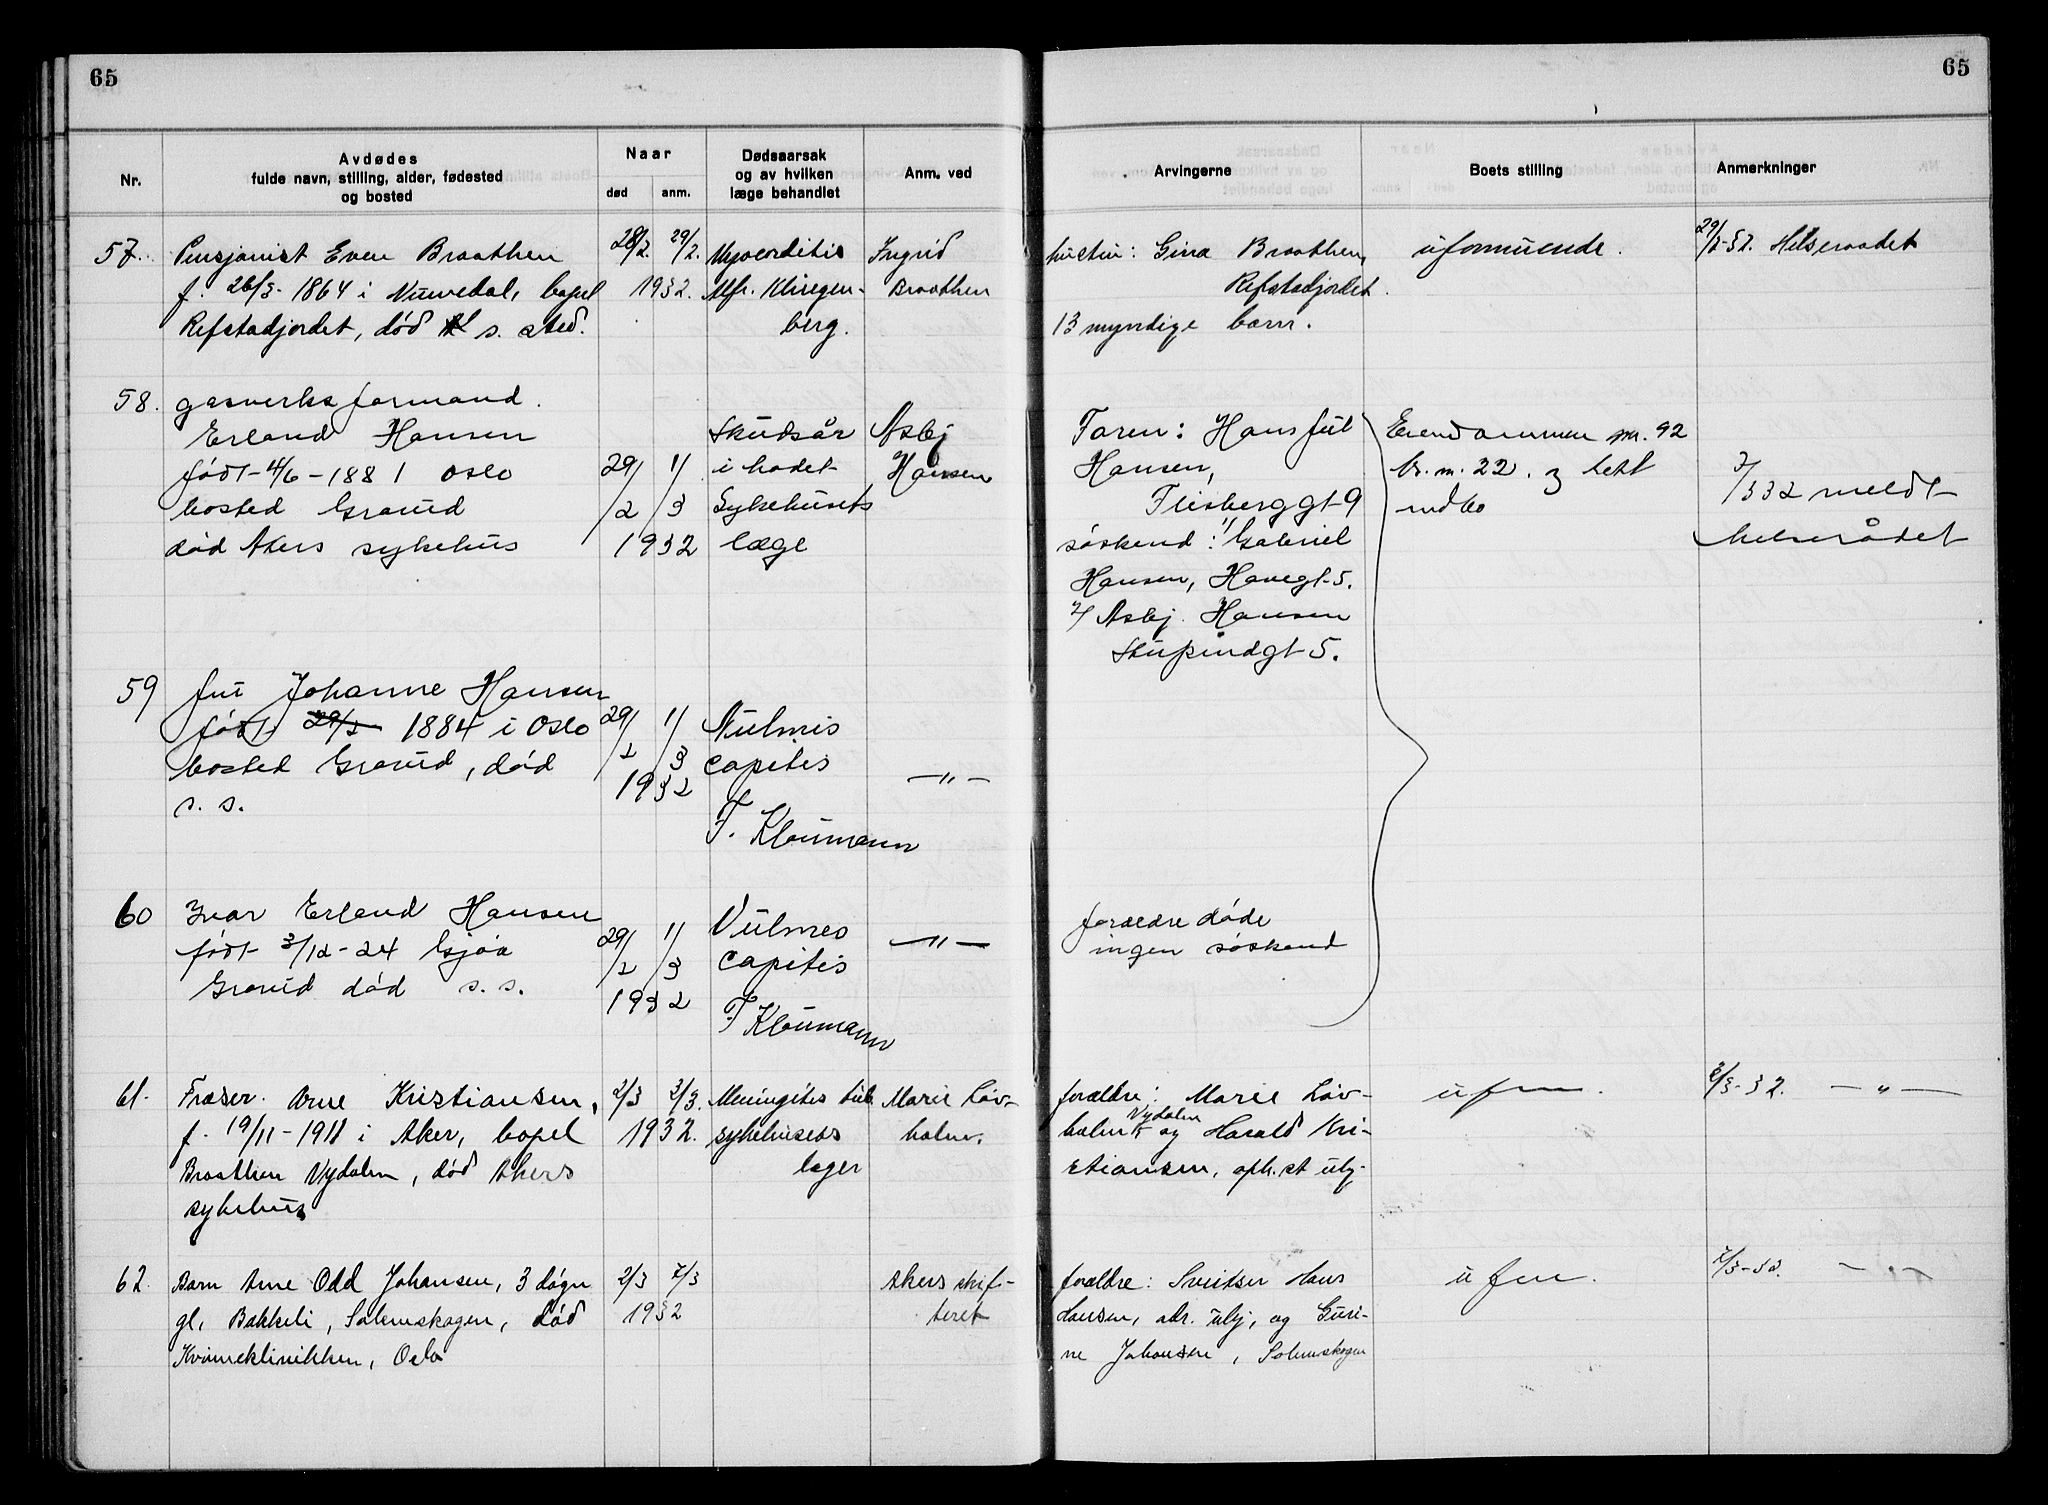 65
65
Nr.
Avdødes
fulde navn, stilling, alder, fødested
og bosted
Naar
død
anm.
Dødsaarsak
og av hvilken
læge behandlet
Anm. ved
Arvingerne
Boets stilling
Anmerkninger
57.
Pensjonist Even Braathen
f. 26/3- 1864 i Numedal, bopel
Refstadjordet, død s. sted.
28/2. 29/2.
1932.
Myocarditis
Alfr. Klingen-
berg.
Ingrid
Braathen
hustru: Gina Braathen,
Refstadjordet.
13 myndige barn.
uformuende.
29/2-32. Helseraadet
58.
gasverksformand.
Erland Hansen
født 4/6-1881 Oslo
bosted Grorud
død Akers sykehus
29/2 1/3
1932
Skudsår
i hodet
Sykehusets
læge
Asbj
Hansen
Faren: Hans Jul
Hansen,
gt 9
søskend: 1/ Gabriel
Hansen, Havegt 5.
2/ Asbj. Hansen
5.
Eiendommen nr. 92
br. nr. 22. og lett
indbo
7/3 32 meldt
helserådet
59
fru Johanne Hansen
født 29/3 1884 i Oslo
bosted Grorud, død
s. s.
29/2 1/3
1932
Vulnus
capitis
F. Kloumann
—"—
60
Ivar Erland Hansen
født 3/12-24 Gjøa
Grorud død s. s.
29/2 1/3
1932
Vulnus
capitis
F Kloumann
—"—
forældre døde
ingen søskend
61.
Fræser Arne Kristiansen,
f. 19/11-1911 i Aker, bopel
Braathen Nydalen, død Akers
sykehus
2/3 3/3.
1932.
Meningitis tub
sykehusets
leger
Marie Løv-
holm.
forældre: Marie Løv-
holm, Nydalen og Harald Kri-
stiansen, oph.st ubj.
ufm.
8/3-32. —"—
62.
Barn Arne Odd Johansen, 3 døgn
gl, Bakkeli, Solemskogen, død
Kvinneklinikken, Oslo
2/3 7/3
1932
Akers skif-
teret
forældre: Sveitser Hans
Hansen, adr. ubj, og Guri-
ne Johansen, Solemskogen
ufm.
7/3-32. —"—